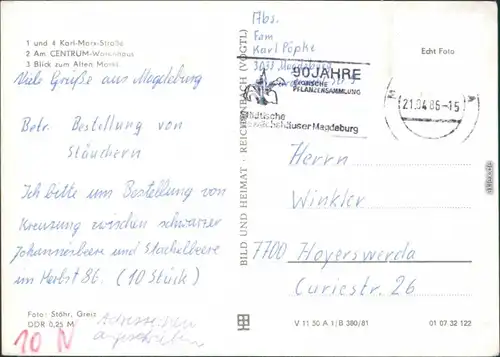 1 und 4 Karl-Marx-Straße
2 Am CENTRUM-Warenhaus
3 Blick zum Alten Markt
Viele Grüße aus Magdeburg
Betr. Bestellung von
Stäuchern
Ich bitte um Bestellung von
Kreuzung zwischen schwarzer
Johannesbeere und Stachelbeere
im Herbst 86. (10 Stück)
Foto: Stöhr, Greiz
DDR 0,25 M
10 N
angeschrieben
BILD UND HEIMAT · REICHENBACH (VOGTL)
Abs.
Fam
Karl Pöpke
3033 Magdeburg
90 JAHRE
PFLANZENSAMMLUNG
Städtische
Gewächshäuser Magdeburg
Echt Foto
21.04.86-15
Herrn
Winkler
7700 Hoyerswerda
Curiestr. 26
V 11 50 A 1/B 380/81
01 07 32 122